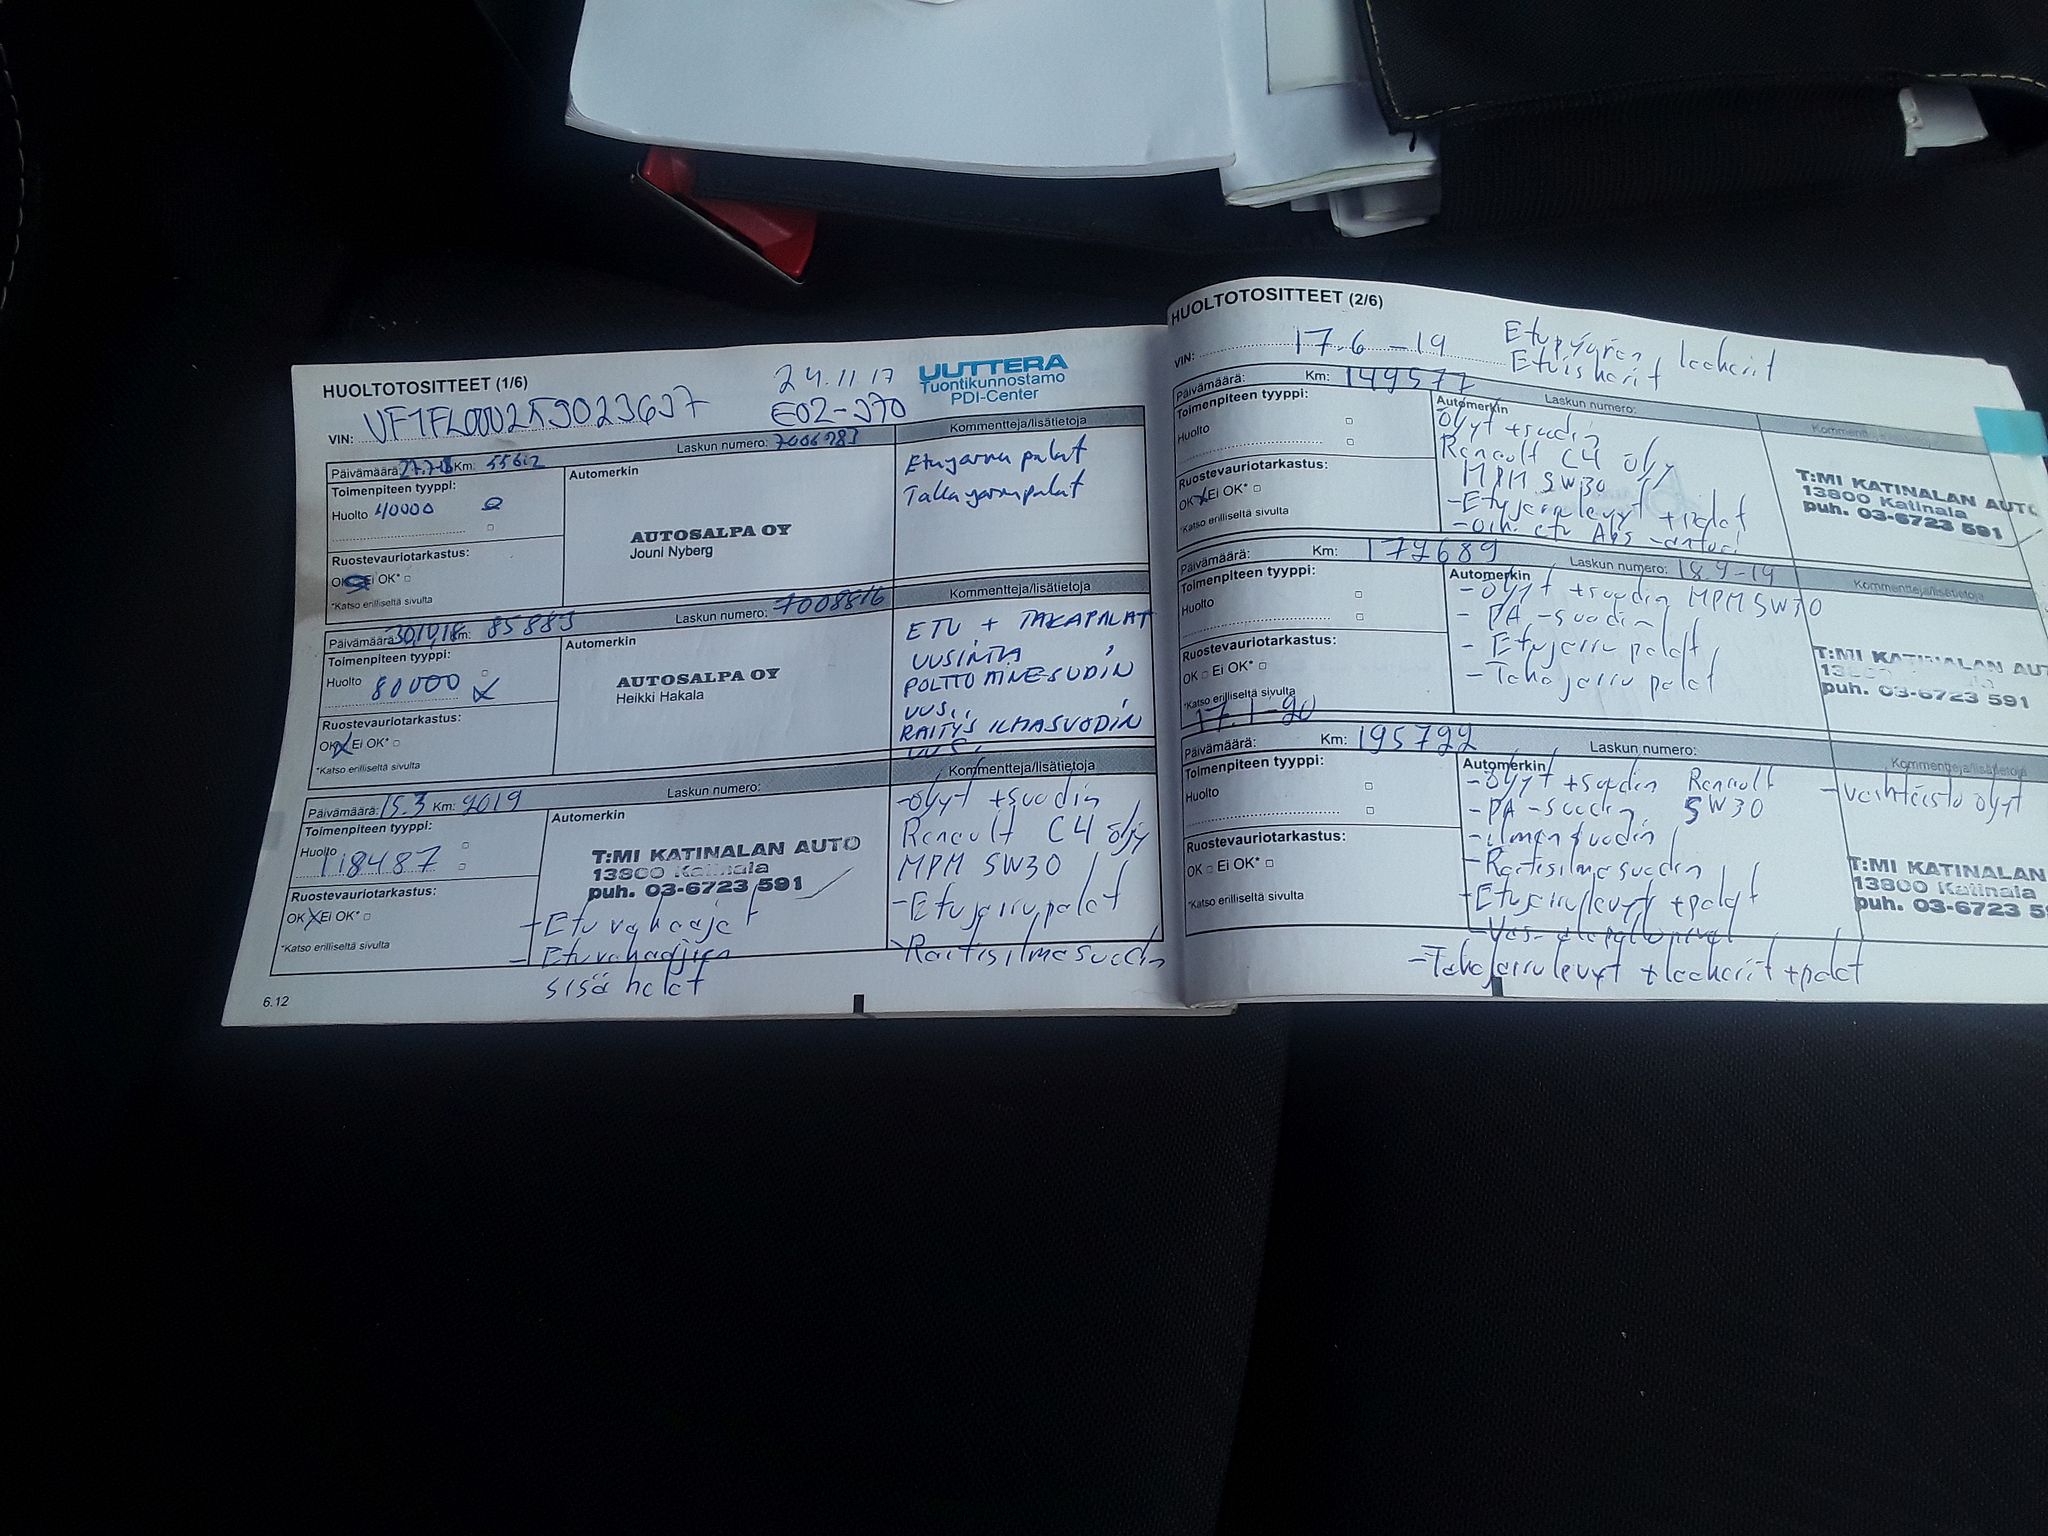 HUOLTOTOSITTEET (1/6)
24.11 17
UUTTERA
Tuontikunnostamo
PDI-Center
VIN:
Päivämäärä: Km: 55612 Laskun numero:
Kommentteja/lisätietoja
Toimenpiteen tyyppi:
Huolto 40000
Automerkin
AUTOSALPA OY
Jouni Nyberg
Etujarru palat
Takajarrupalat
Ruostevauriotarkastus:
OK Ei OK*
*Katso erilliseltä sivulta
Päivämäärä: Km: 85883 Laskun numero: 7008816
Kommentteja/lisätietoja
Toimenpiteen tyyppi:
Huolto 80000
Automerkin
AUTOSALPA OY
Heikki Hakala
ETU + TAKAPALAT
UUSINTA
POLTTOAINESUODIN
UUS..
RAITYS ILMASUODIN
UUS.
Ruostevauriotarkastus:
OK Ei OK*
*Katso erilliseltä sivulta
Päivämäärä: 15.3 Km: 2019 Laskun numero:
Kommentteja/lisätietoja
Toimenpiteen tyyppi:
Huolto
118487
Automerkin
T:MI KATINALAN AUTO
13800 Katinala
puh. 03-6723 591
-Öljyt +suodin
Renault C4 öljy
MPM 5W30
-Etujarrupalat
-Raitisilmasuodin
Ruostevauriotarkastus:
OK Ei OK*
*Katso erilliseltä sivulta
-Etu
-
sisä
6.12
HUOLTOTOSITTEET (2/6)
VIN: 17.6 -19
Etupyörän laakerit
Päivämäärä: Km: 149577 Laskun numero:
Toimenpiteen tyyppi:
Huolto
Automerkin
Öljyt +suodin
Renault C4 öljy
MPM 5W30
-Etujarrulevyt +palat
-Oik. etu Abs -anturi
T:MI KATINALAN AUTO
13800 Katinala
puh. 03-6723 591
Ruostevauriotarkastus:
OK Ei OK*
*Katso erilliseltä sivulta
Päivämäärä: Km: 172689 Laskun numero: 18.9-19
Kommentteja/lisätietoja
Toimenpiteen tyyppi:
Huolto
Automerkin
-Öljyt +suodin MPM 5W30
-PA -suodin
-Etujarru palat
-Takajarru palat
T:MI KATINALAN AUT
puh. 03-6723 591
Ruostevauriotarkastus:
OK Ei OK*
*Katso erilliseltä sivulta
17.1-20
Päivämäärä: Km: 195722 Laskun numero:
Kommentteja/lisätietoja
Toimenpiteen tyyppi:
Huolto
Automerkin
-Öljyt +suodin Renault
-PA -suodin 5W30
-ilman suodin
-Raitisilmasuodin
-Etujarrulevyt +palat
-Takajarrulevyt +laakerit +palat
-vaihteisto öljyt
T:MI KATINALAN
13800 Katinala
puh. 03-6723 5
Ruostevauriotarkastus:
OK Ei OK*
*Katso erilliseltä sivulta